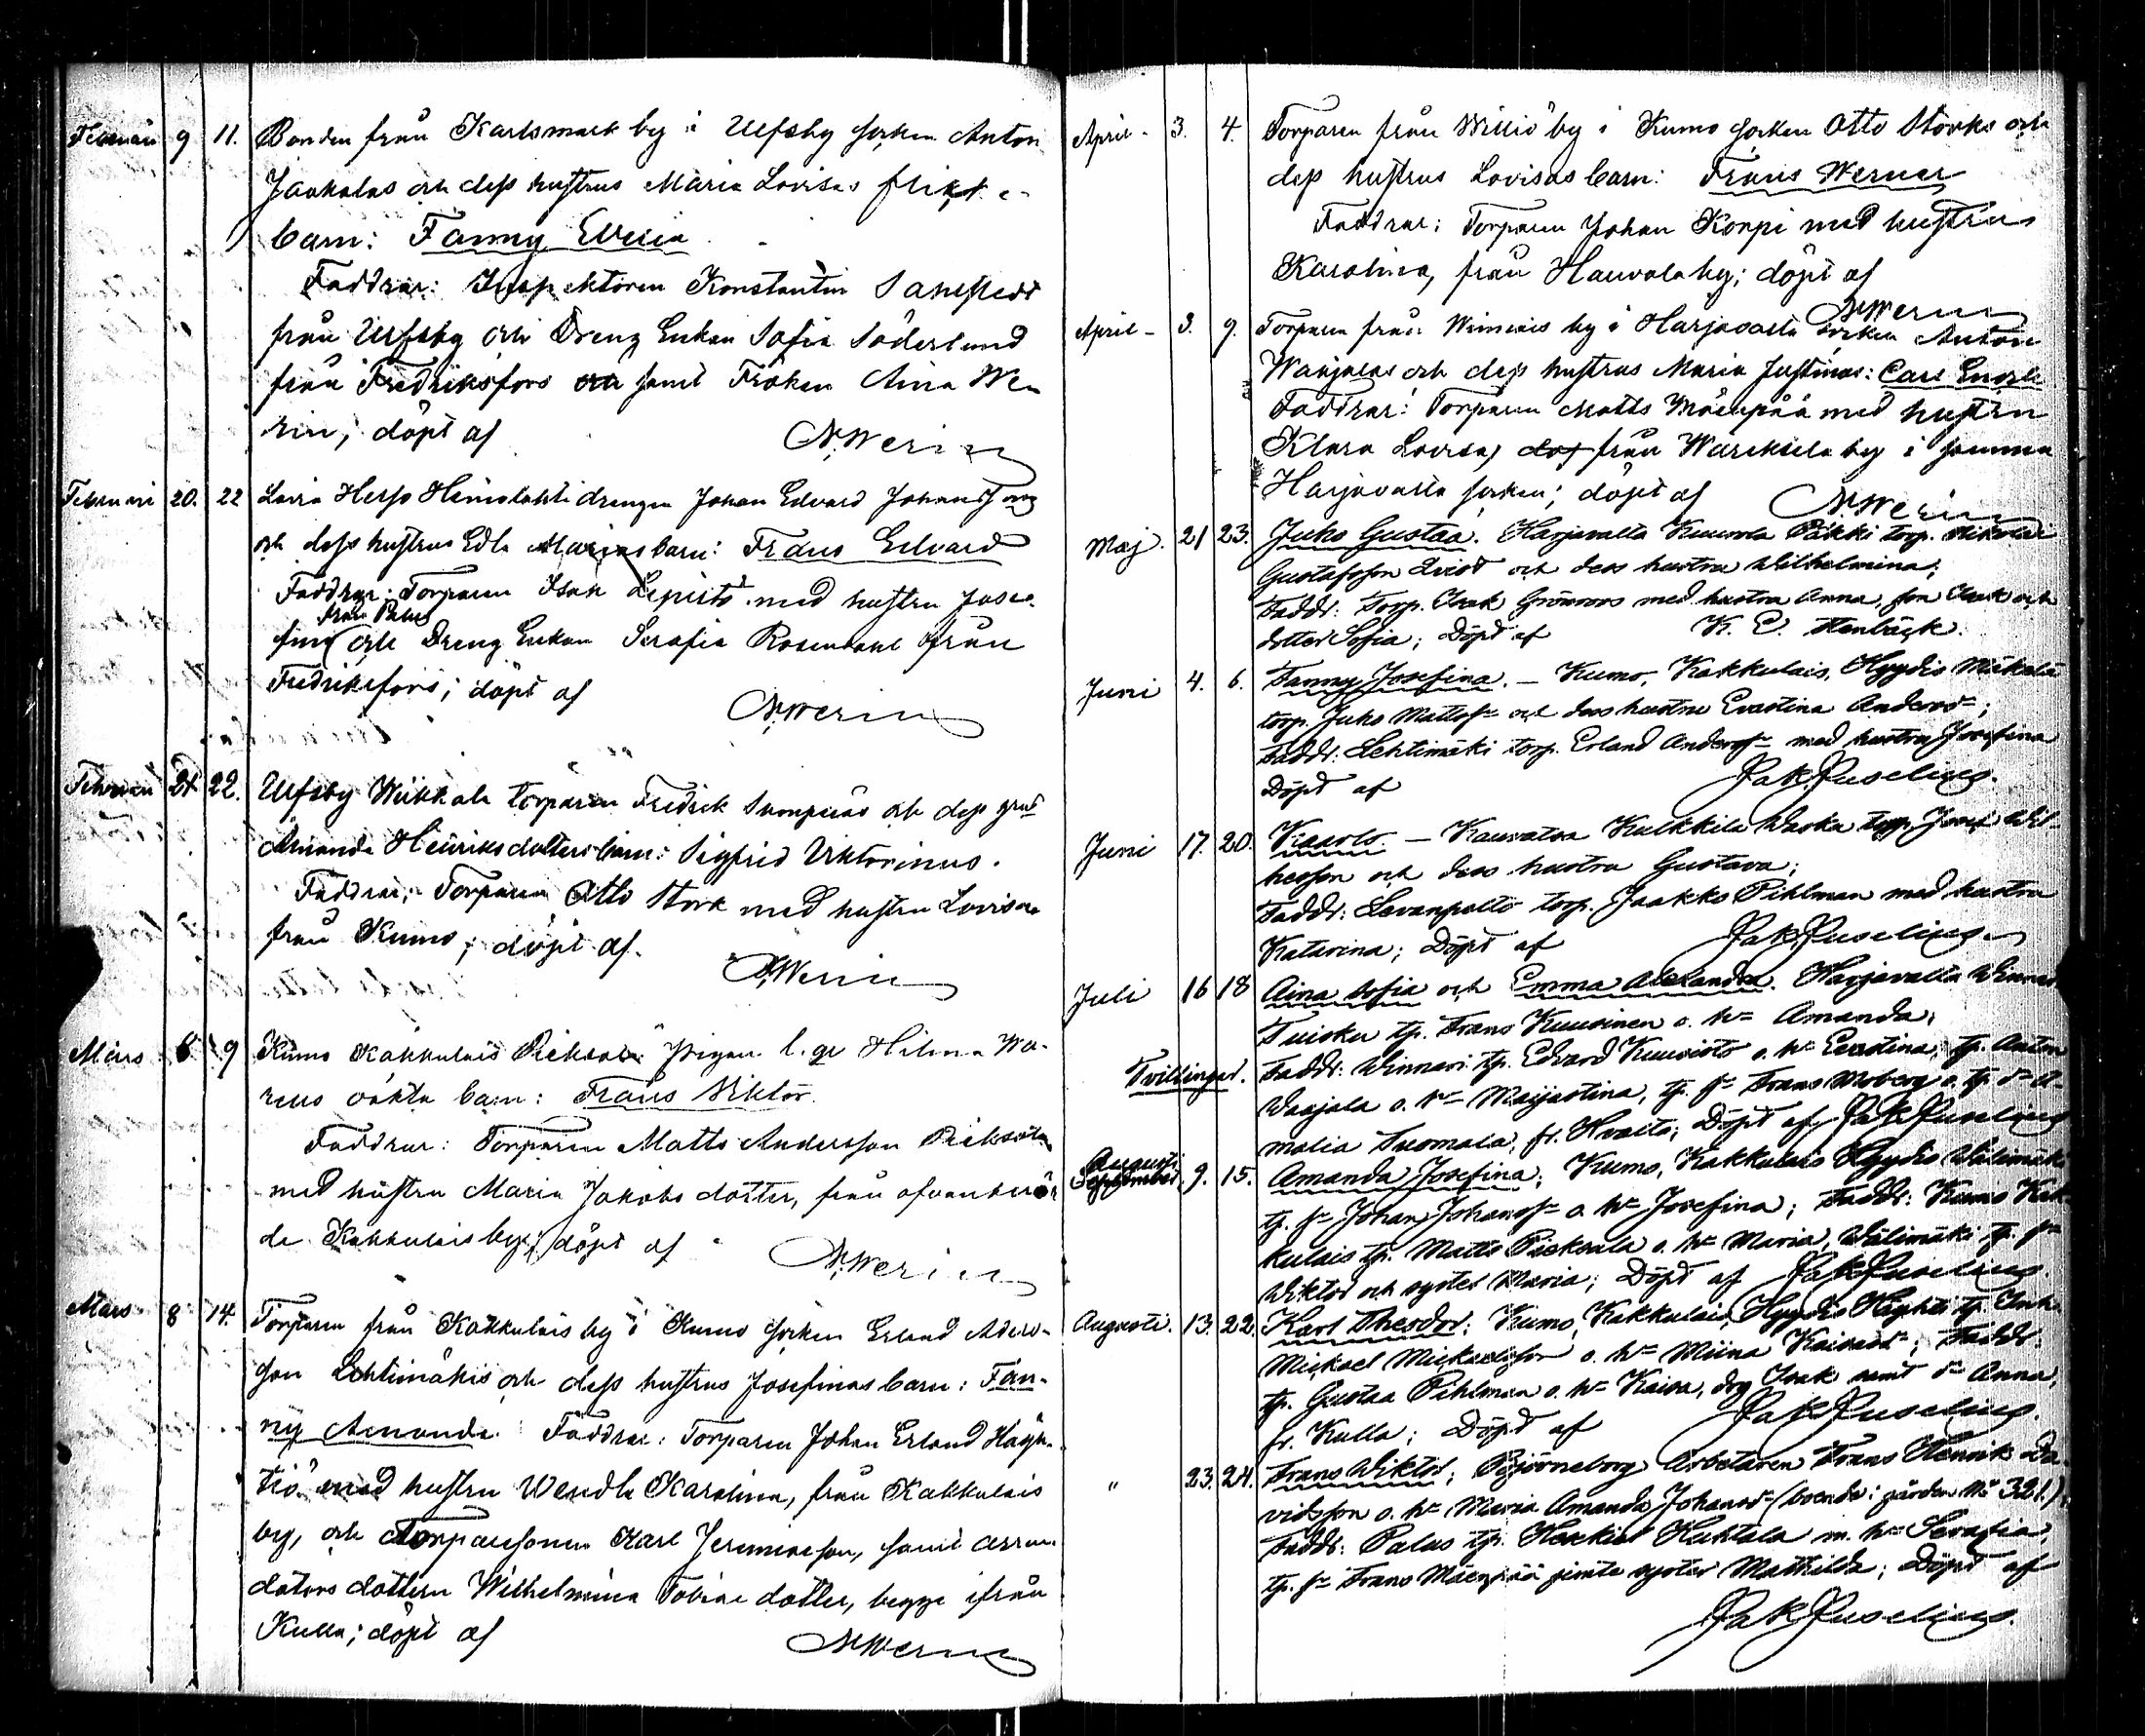 Februari 9 11. Bonden från Karlsmark by i Ulfsby socken Anton
Jaakolas och dess hustrus Maria Lovisas
barn: Fanny Elviia
Faddrar: Inspektoren Konstantin
från Ulfsby och Dreng Enkan Sofia Söderlund
från Fredriksfors samt Fröken Aina We-
rin; döpt af N. Werin
Februari 20. 22 Lavia Herss Heinolahti drengen Johan Edvard Johansson
och dess hustrus Edla Marias barn: Frans Edvard
Faddrar: Torparen Isak Lepistö med hustru Jose-
från Palus
fina och Dreng Enkan Serafia Rosendahl från
Fredriksfors; döpt af N. Werin
Februari 21 22. Ulfsby Wiikkala torparen Fredrik och dess
Amanda Henriksdotters barn: Sigfrid Viktorinus.
Faddrar: Torparen Otto Stork med hustru Lovisa
från Kumo; döpt af. N. Werin
Mars 6 9 Kumo Kakkulais Pieksala Pigan l. qv Hilma Wa-
reus oäkta barn: Frans Viktor.
Faddrar: Torparen Matts Andersson Pieksala
med hustru Maria Jakobs dotter, från ofvanberör-
de Kakkulais by; döpt af N. Werin
Mars 8 14. Torparen från Kakkulais by i Kumo socken Erland Anders-
son Lehtimäkis och dess hustrus Josefinas barn: Fan-
ny Amanda. Faddrar: Torparen Johan Erland Häyh-
tiö med hustru Wendla Karolina, från Kakkulais
by, och Torparesonen Karl Jeremiasson, samt arren-
dators dottern Wilhelmina Tobias dotter, begge ifrån
Kulla; döpt af N. Werin
April 3. 4. Torparen från Williö by i Kumo socken Otto Storks och
dess hustrus Lovisas barn: Frans Werner
Faddrar: Torparen Johan Korpi med hustru
Karolina, från Hauvola by; döpt af
N. Werin
April 3. 9. Torparen från by i Harjavalta socken Anton
Warjalas och dess hustrus Maria Justinas: Carl
Faddrar: Torparen Matts Mäenpää med hustru
Klara Lovisa, från by i samma
Harjavalta socken; döpt af N. Werin
Maj. 21 23. Juho Gustaa. Harjavalta Pākki torp. Nikolai
Gustafsson Qvist och dess hustru Wilhelmina;
Faddr: Torp. Isak Grönroos med hustru Anna, son Isak och
dotter Sofia; Döpt af K. E. Stenbäck.
Juni 4. 6. Fanny Josefina. — Kumo, Kakkulais, Hyydis Mäkelä
torp. Juho Mattss:n och dess hustru Evastina Andersd:r;
Faddr: Lehtimäki torp. Erland Anderss:n med hustru Josefina
Döpt af
Juni 17. 20. Kaarlo. — Kauvatsa Kulkkila Waska torp. Josef Wil-
helsson och dess hustru Gustava;
Faddr: Levanpelto torp. Jaakko Pihlman med hustru
Katarina; Döpt af
Juli 16 18 Aina Sofia och Emma Alexandra. Harjavalta
Tuisku tp. Frans Kuusinen o. h:u Amanda;
Tvillingar. Faddr: Winnari tp. Edvard Kuusisto o. h:u Evastina, tp. Anton
Warjala o. h:u Maijastina, tp. s:n Frans Moberg o. tp. d:r A-
malia Suomala; Döpt af
Augusti
September 9. 15. Amanda Josefina; Kumo, Kakkulais Hyydis Wälimäki
tp. s:n Johan Johanss:n o. h:u Josefina; Faddr: Kumo Kak-
kulais tp. Matts Pieksala o. h:u Maria, Wälimäki tp. s:n
Wiktor och syster Maria; Döpt af
Augusti. 13. 22. Karl Theodor: Kumo, Kakkulais, Hyydis tp.
Mickael Mickaelsson o. h:u Miina; Faddr:
tp. Gustaa Pihlman o. h:u Kaisa, drg Isak samt d:r Anna,
fr. Kulla; Döpt af
" 23. 24. Frans Wiktor; Björneborg Arbetaren Frans Henrik Da-
vidsson o. h:u Maria Amanda Johansd:r (boende i gården N:o 321.);
Faddr: Palus tp. Heikki Huhtala m. h:u Serafia,
tp. s:n Frans Mäenpää jemte syster Mathilda; Döpt af